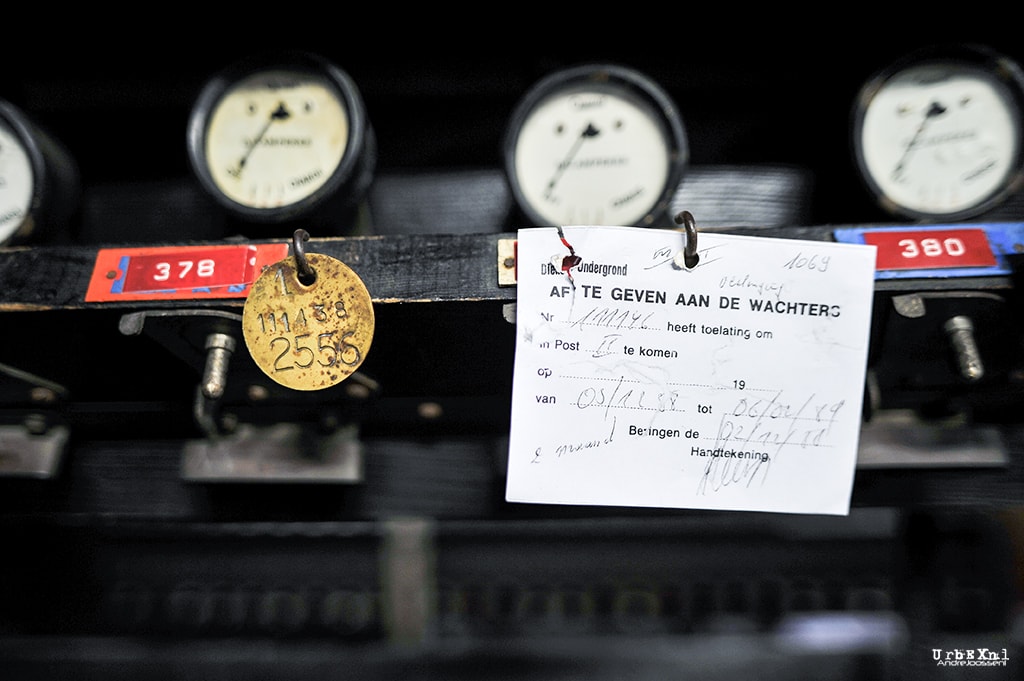 378
380
1
111438
2556
1069
Dienst Ondergrond
AF TE GEVEN AAN DE WACHTERS
Nr 111146 heeft toelating om
in Post II te komen
op 19
van 05/12/88 tot 06/02/89
Beringen de 02/12/88
2 maand
Handtekening
UrbEXnl
AndreJoosse.nl